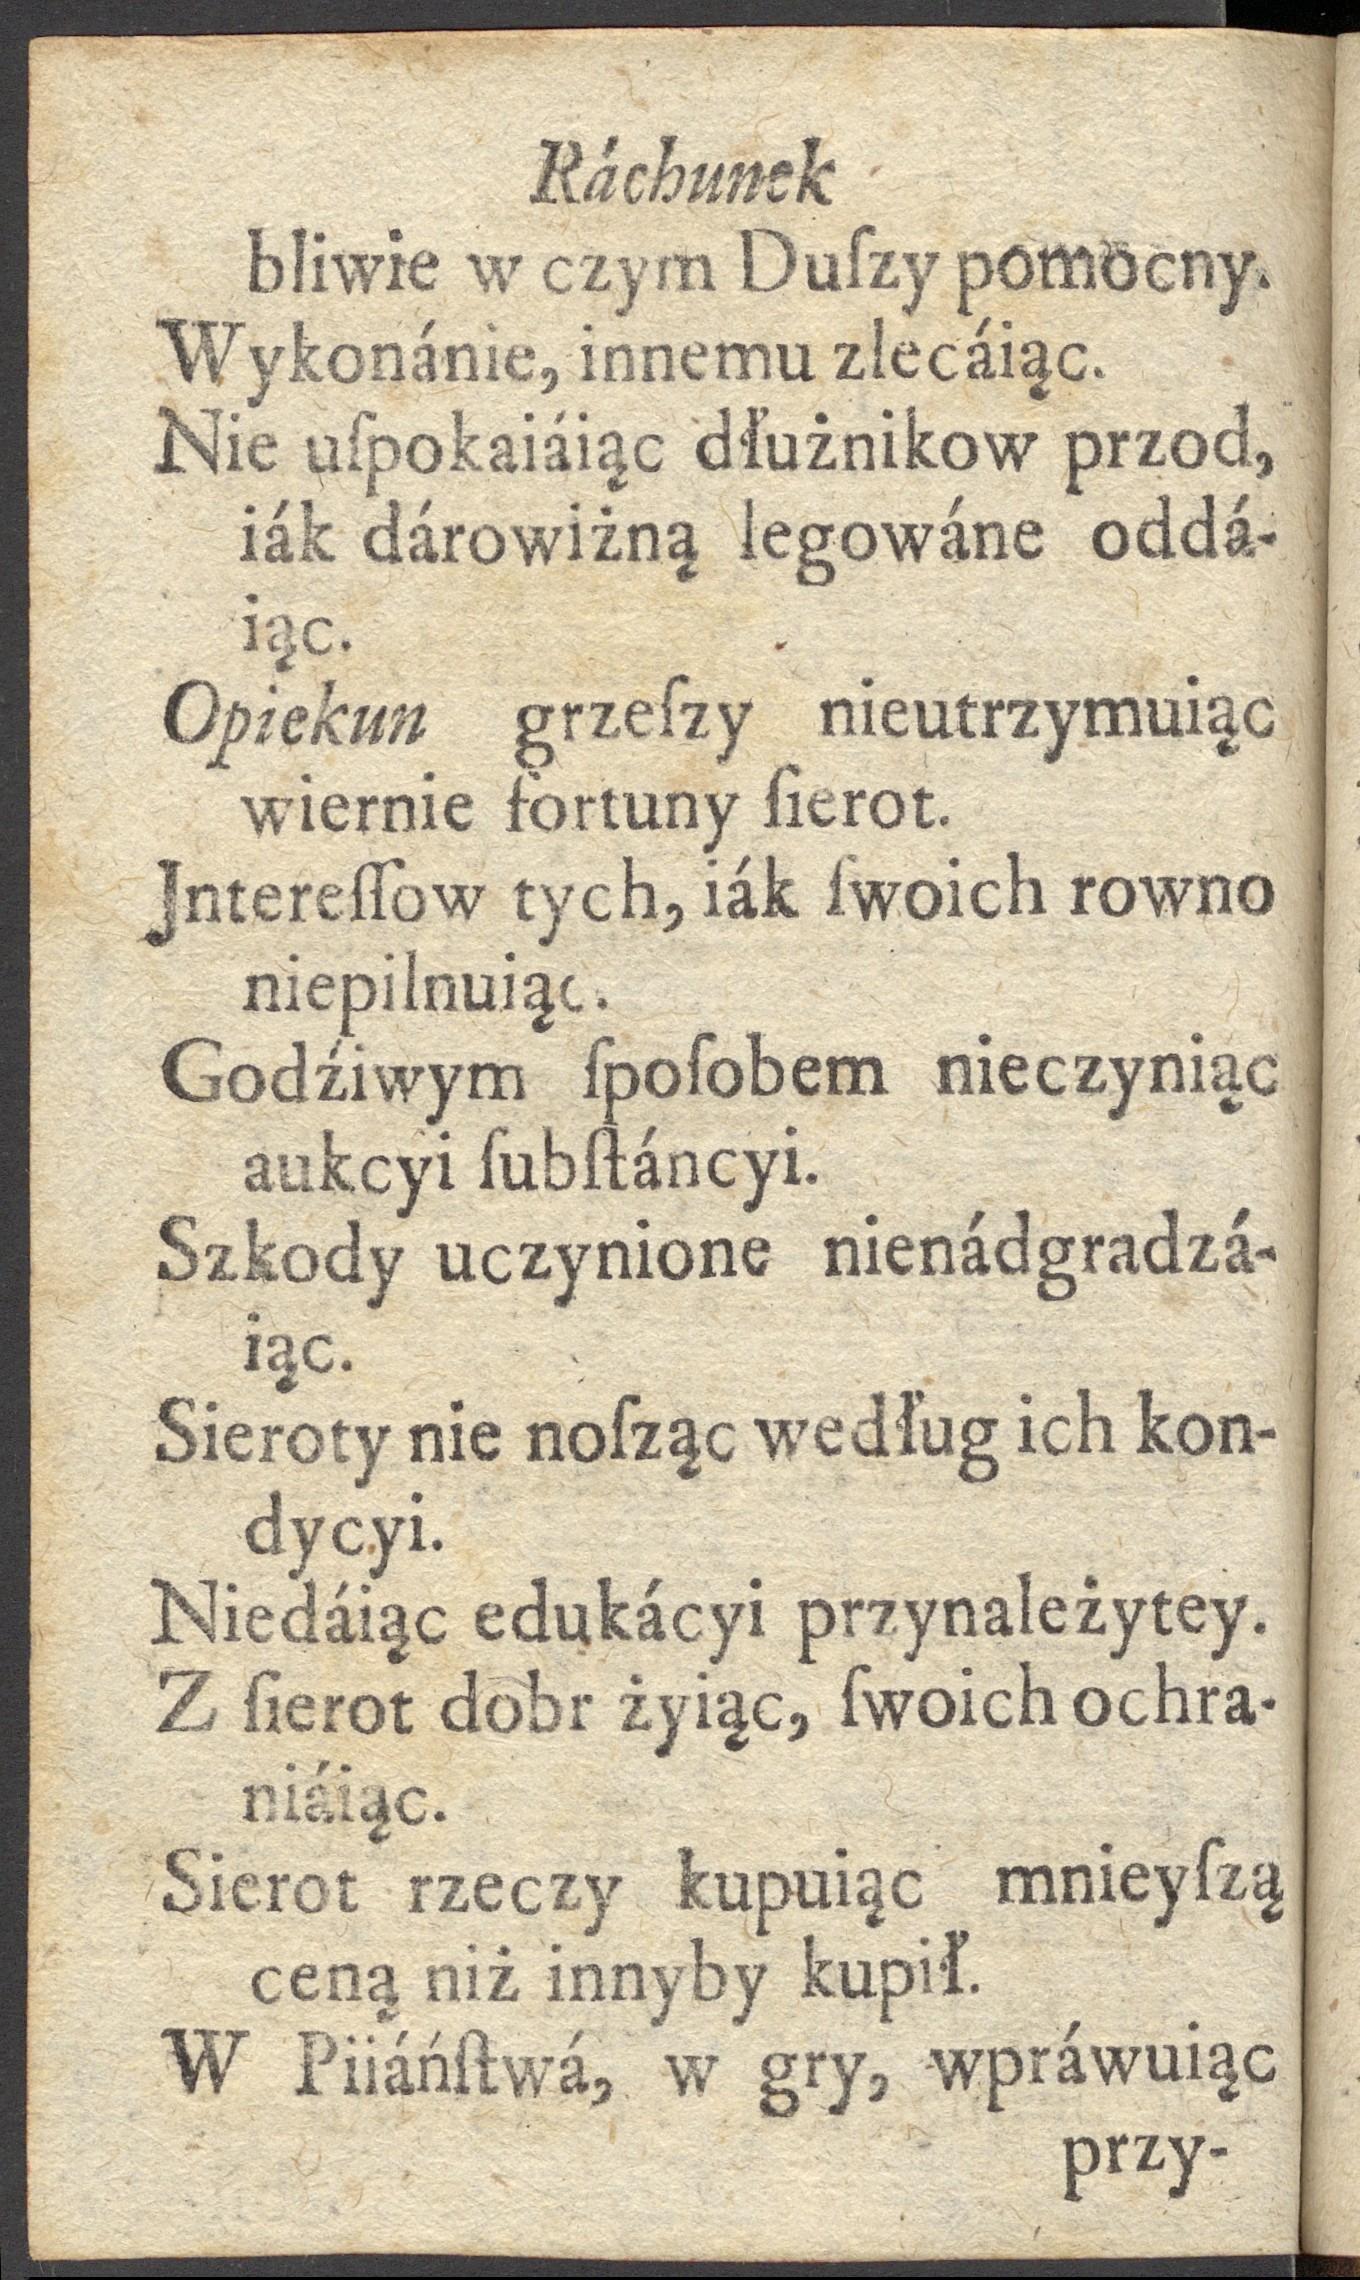 Ráchunek
bliwie w czym Duſzy pomocny.
Wykonánie, innemu zlecáiąc.
Nie uſpokaiáiąc dłużnikow przod,
iák dárowiżną legowáne oddá-
iąc.
Opiekun grzeſzy nieutrzymuiąc
wiernie fortuny ſierot.
Jntereſſow tych, iák ſwoich rowno
niepilnuiąc.
Godźiwym ſpoſobem nieczyniąc
aukcyi ſubſtáncyi.
Szkody uczynione nienádgradzá-
iąc.
Sieroty nie noſząc według ich kon-
dycyi.
Niedáiąc edukácyi przynależytey.
Z ſierot dobr żyiąc, ſwoich ochra-
niáiąc.
Sierot rzeczy kupuiąc mnieyſzą
ceną niż innyby kupił.
W Piiáńſtwá, w gry, wpráwuiąc
przy-